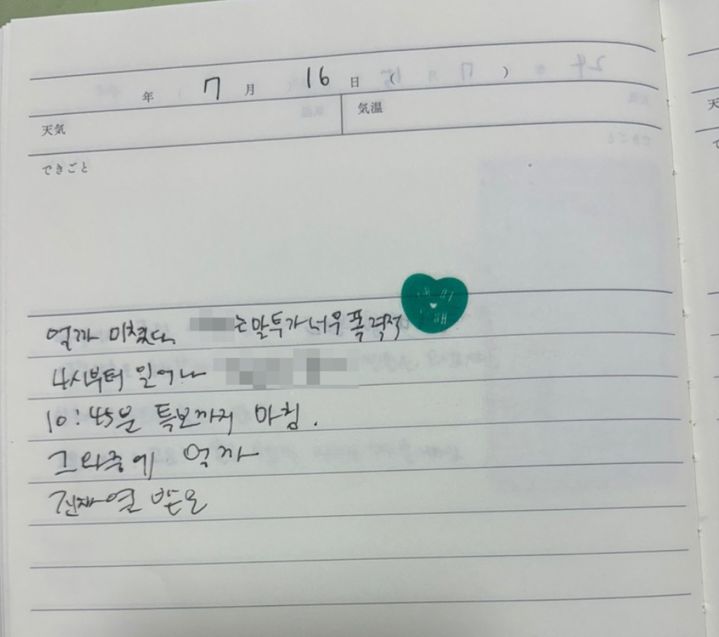 年 7 月 16 日 ( )
天気 気温
できごと
억까 미쳤다 는 말투가 너무 폭력적
4시부터 일어나
10:45분 특보까지 마침.
그 와중에 억까
진짜 열 받음